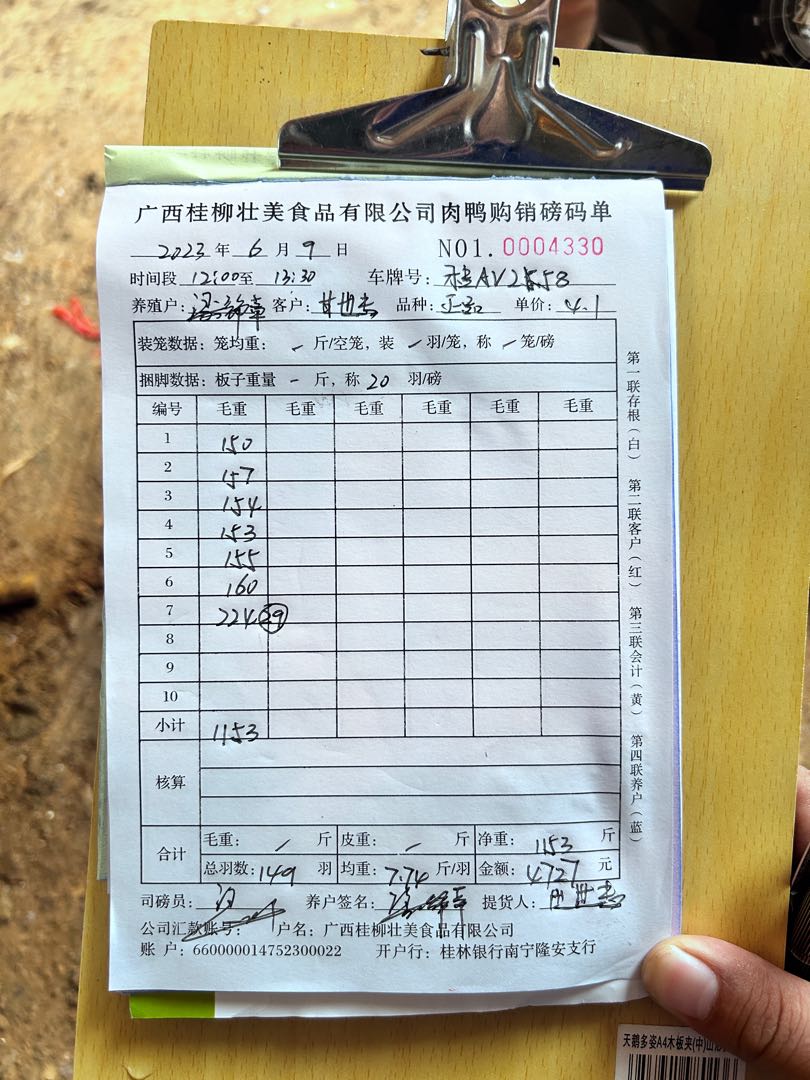 广西桂柳壮美食品有限公司肉鸭购销磅码单
2023年 6月 9日 NO1.0004330
时间段 12:00至 13:30 车牌号: 桂AV2558
养殖户: 客户: 品种: 正品 单价: 4.1
装笼数据: 笼均重: - 斤/空笼, 装 - 羽/笼, 称 - 笼/磅
捆脚数据: 板子重量 - 斤, 称 20 羽/磅
编号 毛重 毛重 毛重 毛重 毛重 毛重
1 150
2 157
3 154
4 153
5 155
6 160
7 224 29
8
9
10
小计 1153
核算
合计 毛重: - 斤 皮重: - 斤 净重: 1153 斤
总羽数: 149 羽 均重: 7.74 斤/羽 金额: 4727 元
司磅员: 养户签名: 提货人:
公司汇款账号: 户名: 广西桂柳壮美食品有限公司
账户: 660000014752300022 开户行: 桂林银行南宁隆安支行
第一联存根(白) 第二联客户(红) 第三联会计(黄) 第四联养户(蓝)
天鹅多姿A4木板夹(中)